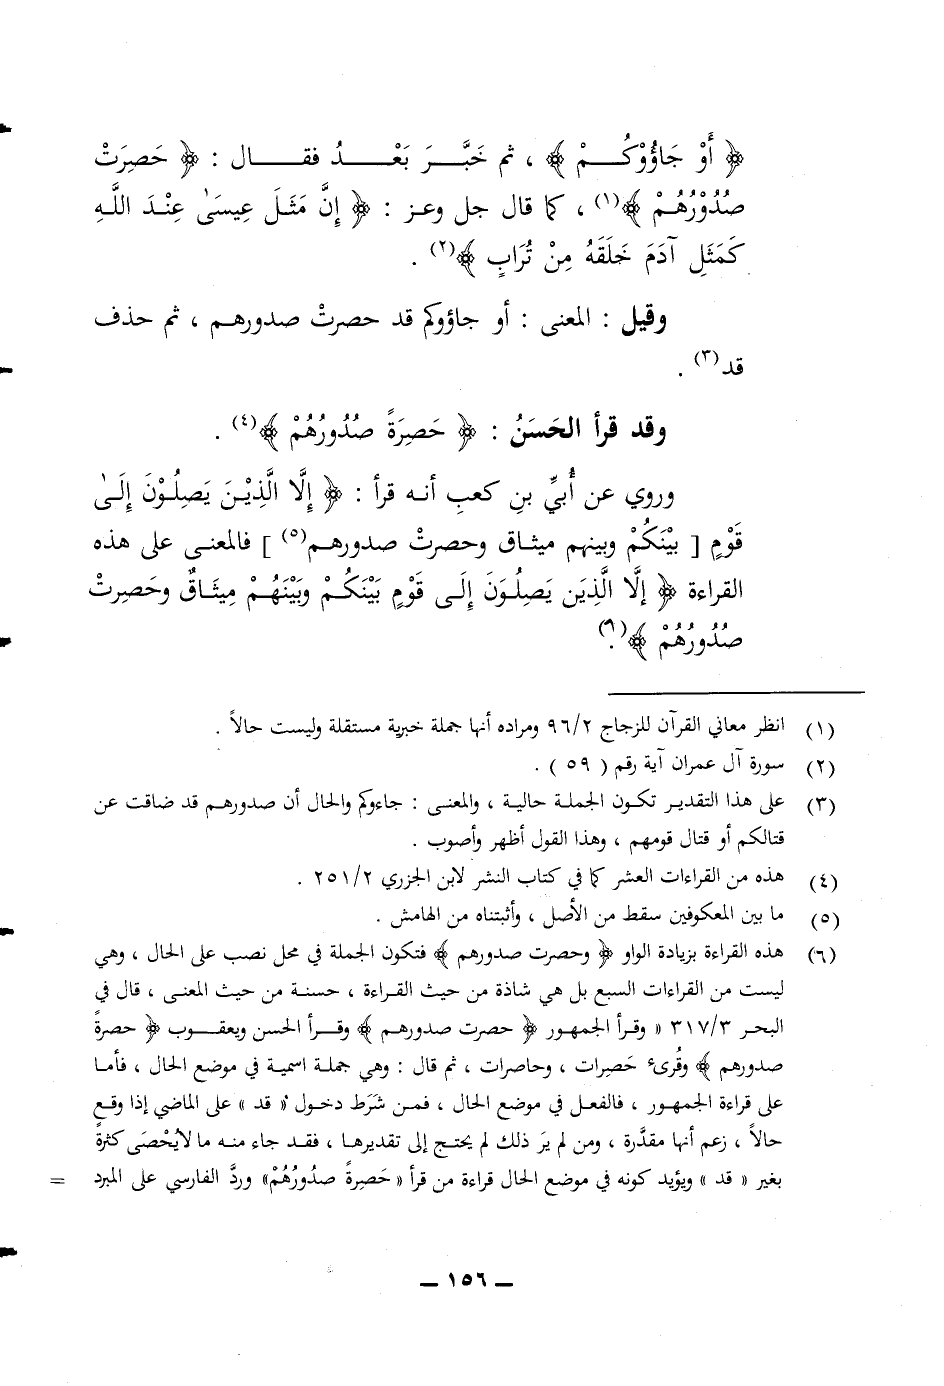 ﴿ أَوْ جَاؤُوْكُمْ ﴾ ، ثم خَبَّرَ بَعْدُ فقال : ﴿ حَصِرَتْ
صُدُوْرُهُمْ ﴾(١) ، كما قال جل وعز : ﴿ إِنَّ مَثَلَ عِيسَىٰ عِنْدَ اللَّهِ
كَمَثَلِ آدَمَ خَلَقَهُ مِنْ تُرَابٍ ﴾(٢) .
وقيل : المعنى : أو جاؤوكم قد حصرتْ صدورهم ، ثم حذف
قد(٣) .
وقد قرأ الحَسَنُ : ﴿ حَصِرَةً صُدُورُهُمْ ﴾(٤) .
وروي عن أُبيِّ بنِ كعبٍ أنه قرأ : ﴿ إِلَّا الَّذِيْنَ يَصِلُوْنَ إِلَىٰ
قَوْمٍ [ بيْنَكُمْ وبينهم ميثاق وحصرتْ صدورهم(٥) ] فالمعنى على هذه
القراءة ﴿ إلَّا الَّذِيَن يَصِلُوَنَ إِلَى قَوْمٍ بَيْنَكُمْ وبَيْنَهُمْ مِيثَاقٌ وحَصِرتْ
صُدُورُهُمْ ﴾(٦) .
(١) انظر معاني القرآن للزجاج ٩٦/٢ ومراده أنها جملة خبرية مستقلة وليست حالاً .
(٢) سورة آل عمران آية رقم ( ٥٩ ) .
(٣) على هذا التقدير تكون الجملة حالية ، والمعنى : جاءوكم والحال أن صدورهم قد ضاقت عن
قتالكم أو قتال قومهم ، وهذا القول أظهر وأصوب .
(٤) هذه من القراءات العشر كما في كتاب النشر لابن الجزري ٢٥١/٢ .
(٥) ما بين المعكوفين سقط من الأصل ، وأثبتناه من الهامش .
(٦) هذه القراءة بزيادة الواو ﴿ وحصرت صدورهم ﴾ فتكون الجملة في محل نصب على الحال ، وهي
ليست من القراءات السبع بل هي شاذة من حيث القراءة ، حسنة من حيث المعنى ، قال في
البحر ٣١٧/٣ « وقرأ الجمهور ﴿ حصرت صدورهم ﴾ وقرأ الحسن ويعقوب ﴿ حصرةً
صدورهم ﴾ وقُرئ حَصِرات ، وحاصرات ، ثم قال : وهي جملة اسمية في موضع الحال ، فأما
على قراءة الجمهور ، فالفعل في موضع الحال ، فمن شَرَط دخول « قد » على الماضي إذا وقع
حالاً ، زعم أنها مقدَّرة ، ومن لم يَر ذلك لم يحتج إلى تقديرها ، فقد جاء منه ما لايُحْصَى كثرةً
بغير « قد » ويؤيد كونه في موضع الحال قراءة من قرأ «حَصِرةً صدُورُهُمْ» وردَّ الفارسي على المبرد =
ــ ١٥٦ ــ